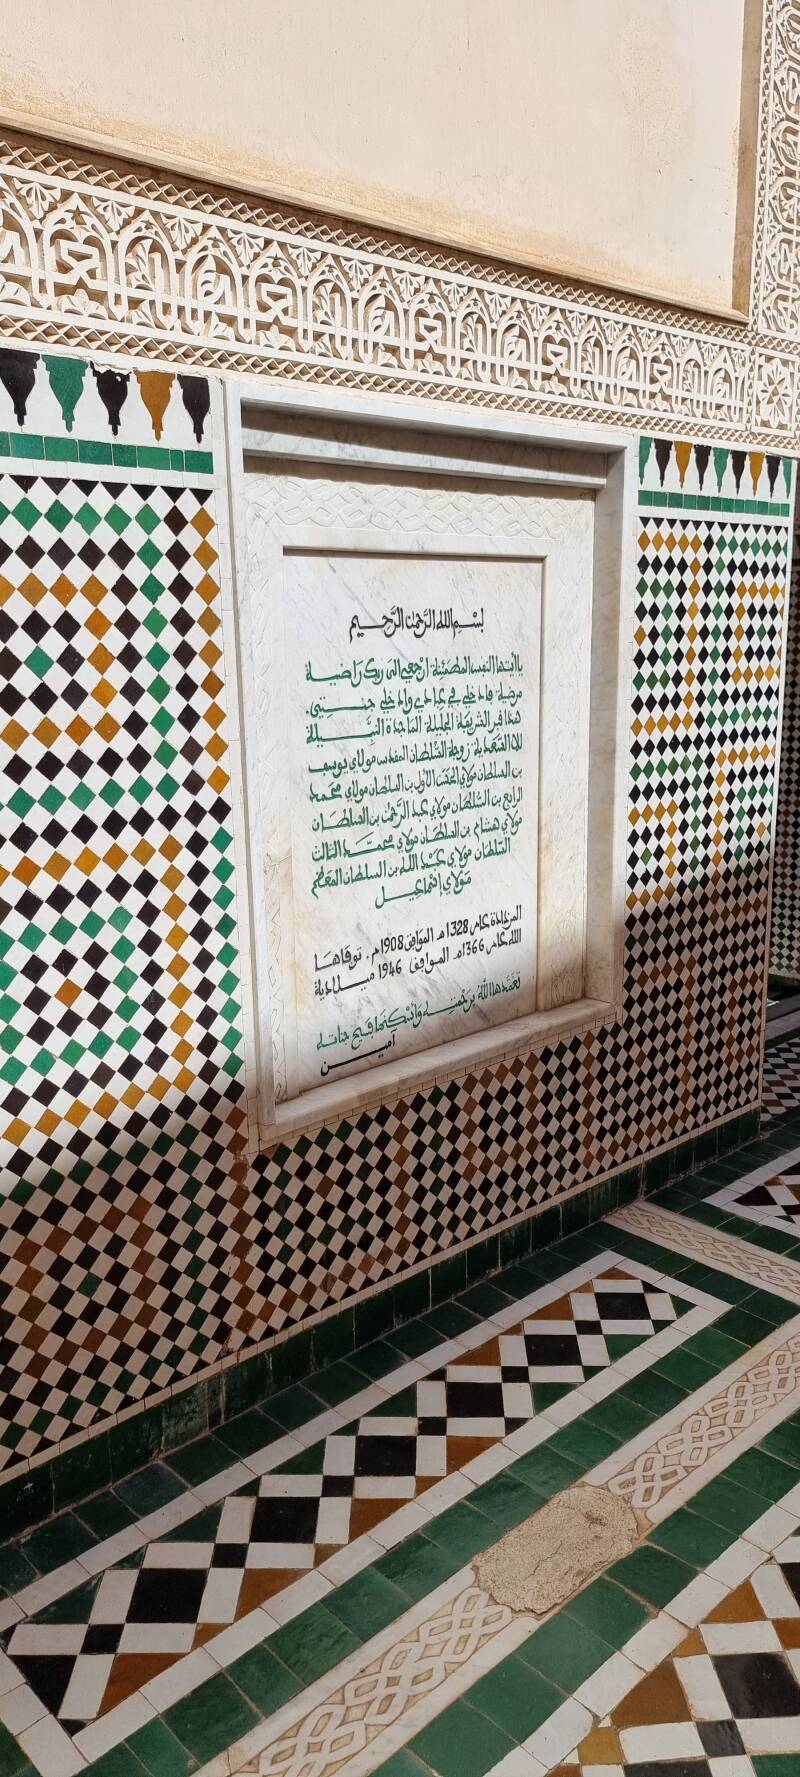 بِسْمِ اللهِ الرَّحْمٰنِ الرَّحِيمِ
يا أيتها النفس المطمئنة ارجعي إلى ربك راضية
مرضية فادخلي في عبادي وادخلي جنتي.
هذا قبر الشريفة الجليلة الماجدة النبيلة
للا السعدية زوجة السلطان المقدس مولاي يوسف
بن السلطان مولاي الحسن الأول بن السلطان مولاي محمد
الرابع بن السلطان مولاي عبد الرحمٰن بن السلطان
مولاي هشام بن السلطان مولاي محمد الثالث
السلطان مولاي عبد الله بن السلطان المعظم
مولاي إسماعيل
المزدادة عام 1328هـ الموافق 1908م. توفاها
الله عام 1366هـ الموافق 1946 ميلادية
تغمدها الله برحمته وأسكنها فسيح جناته
آمين